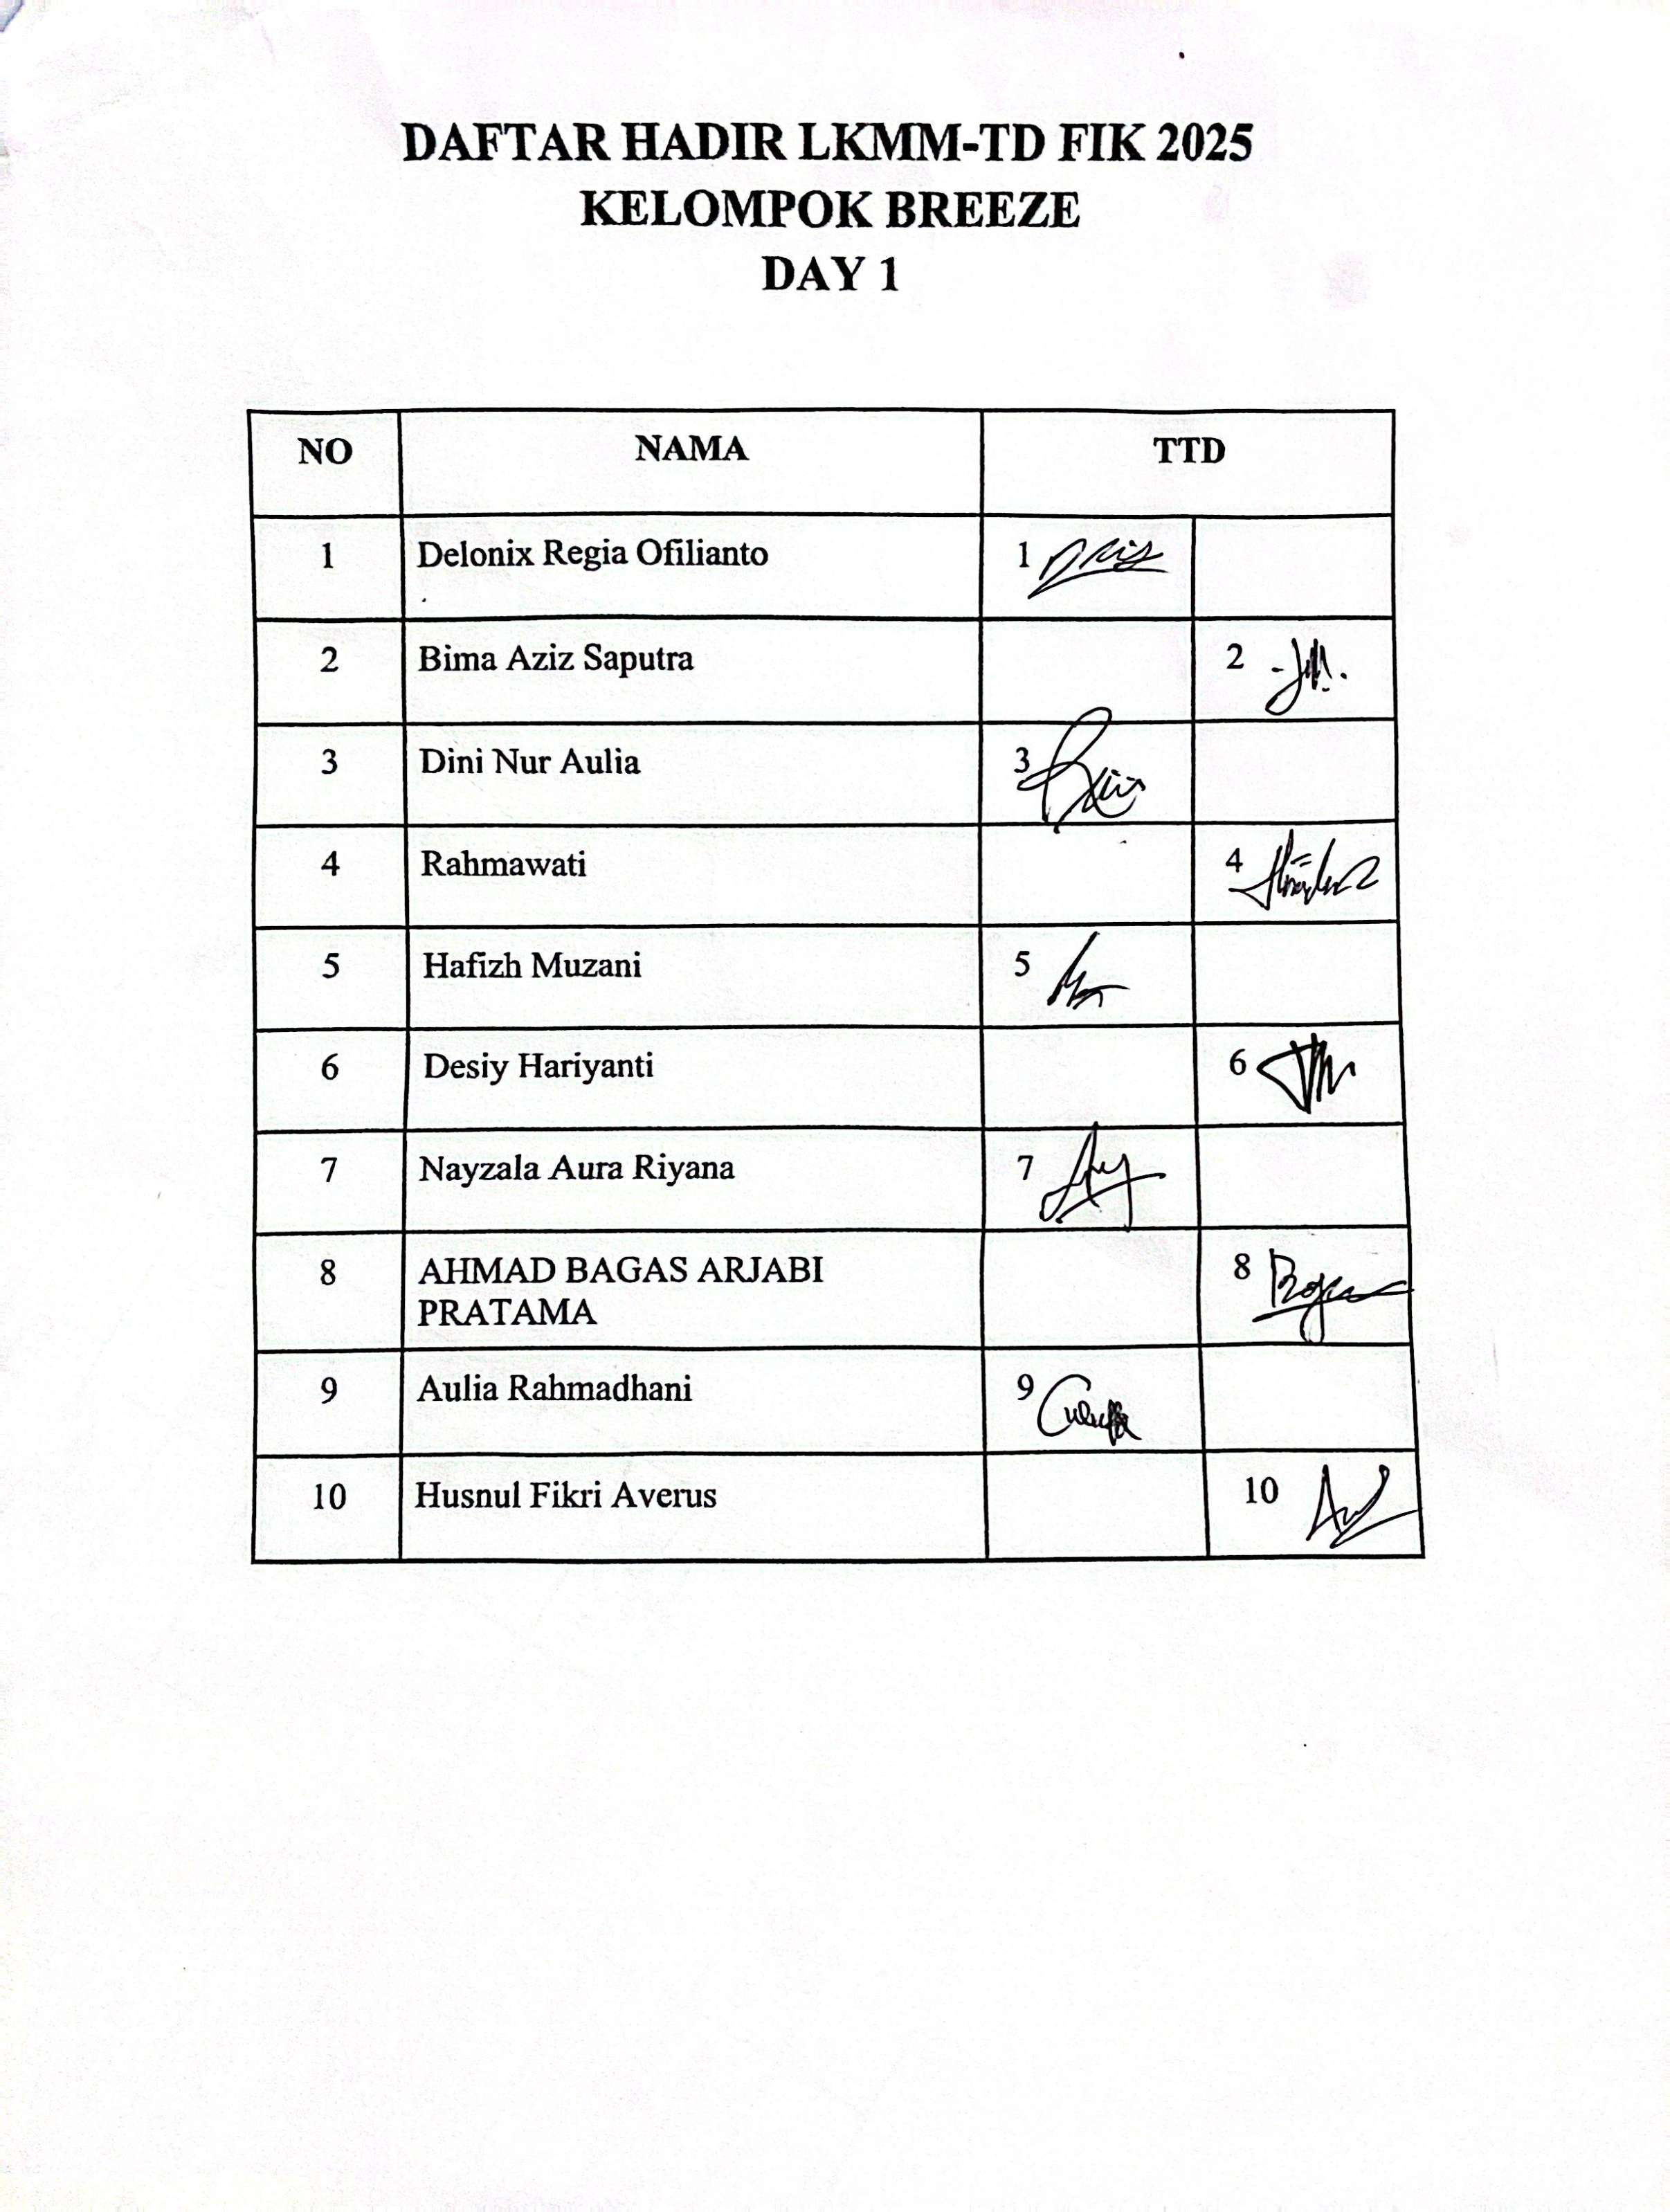 DAFTAR HADIR LKMM-TD FIK 2025
KELOMPOK BREEZE
DAY 1
NO NAMA TTD
1 Delonix Regia Ofilianto 1
2 Bima Aziz Saputra 2
3 Dini Nur Aulia 3
4 Rahmawati 4
5 Hafizh Muzani 5
6 Desiy Hariyanti 6
7 Nayzala Aura Riyana 7
8 AHMAD BAGAS ARJABI 8
PRATAMA
9 Aulia Rahmadhani 9
10 Husnul Fikri Averus 10